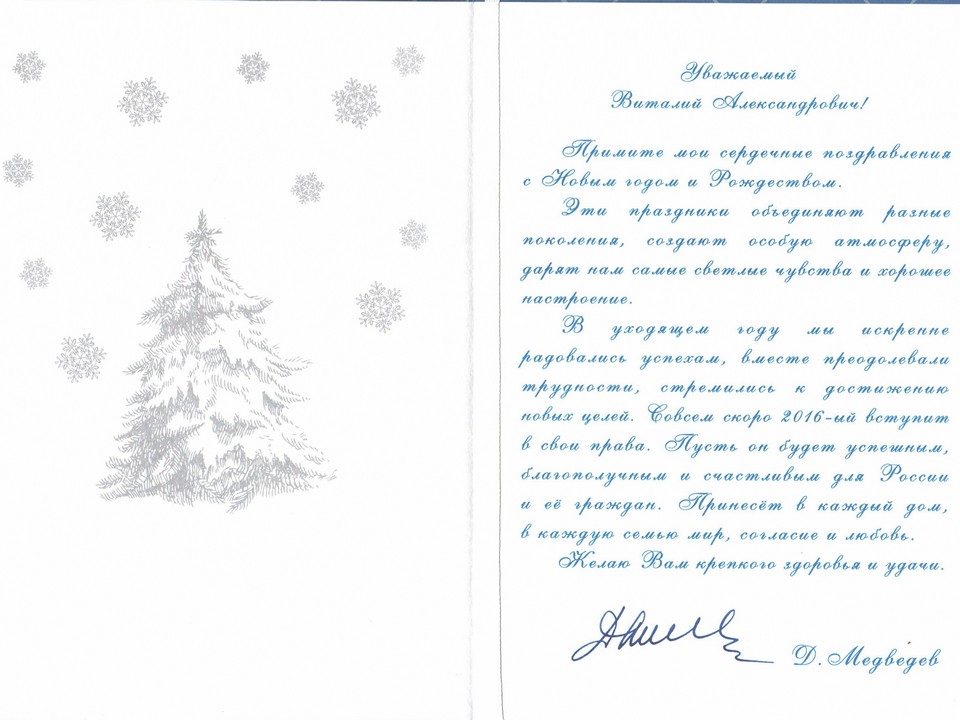 Уважаемый
Виталий Александрович!
Примите мои сердечные поздравления
с Новым годом и Рождеством.
Эти праздники объединяют разные
поколения, создают особую атмосферу,
дарят нам самые светлые чувства и хорошее
настроение.
В уходящем году мы искренне
радовались успехам, вместе преодолевали
трудности, стремились к достижению
новых целей. Совсем скоро 2016-ый вступит
в свои права. Пусть он будет успешным,
благополучным и счастливым для России
и её граждан. Принесёт в каждый дом,
в каждую семью мир, согласие и любовь.
Желаю Вам крепкого здоровья и удачи.
Д. Медведев